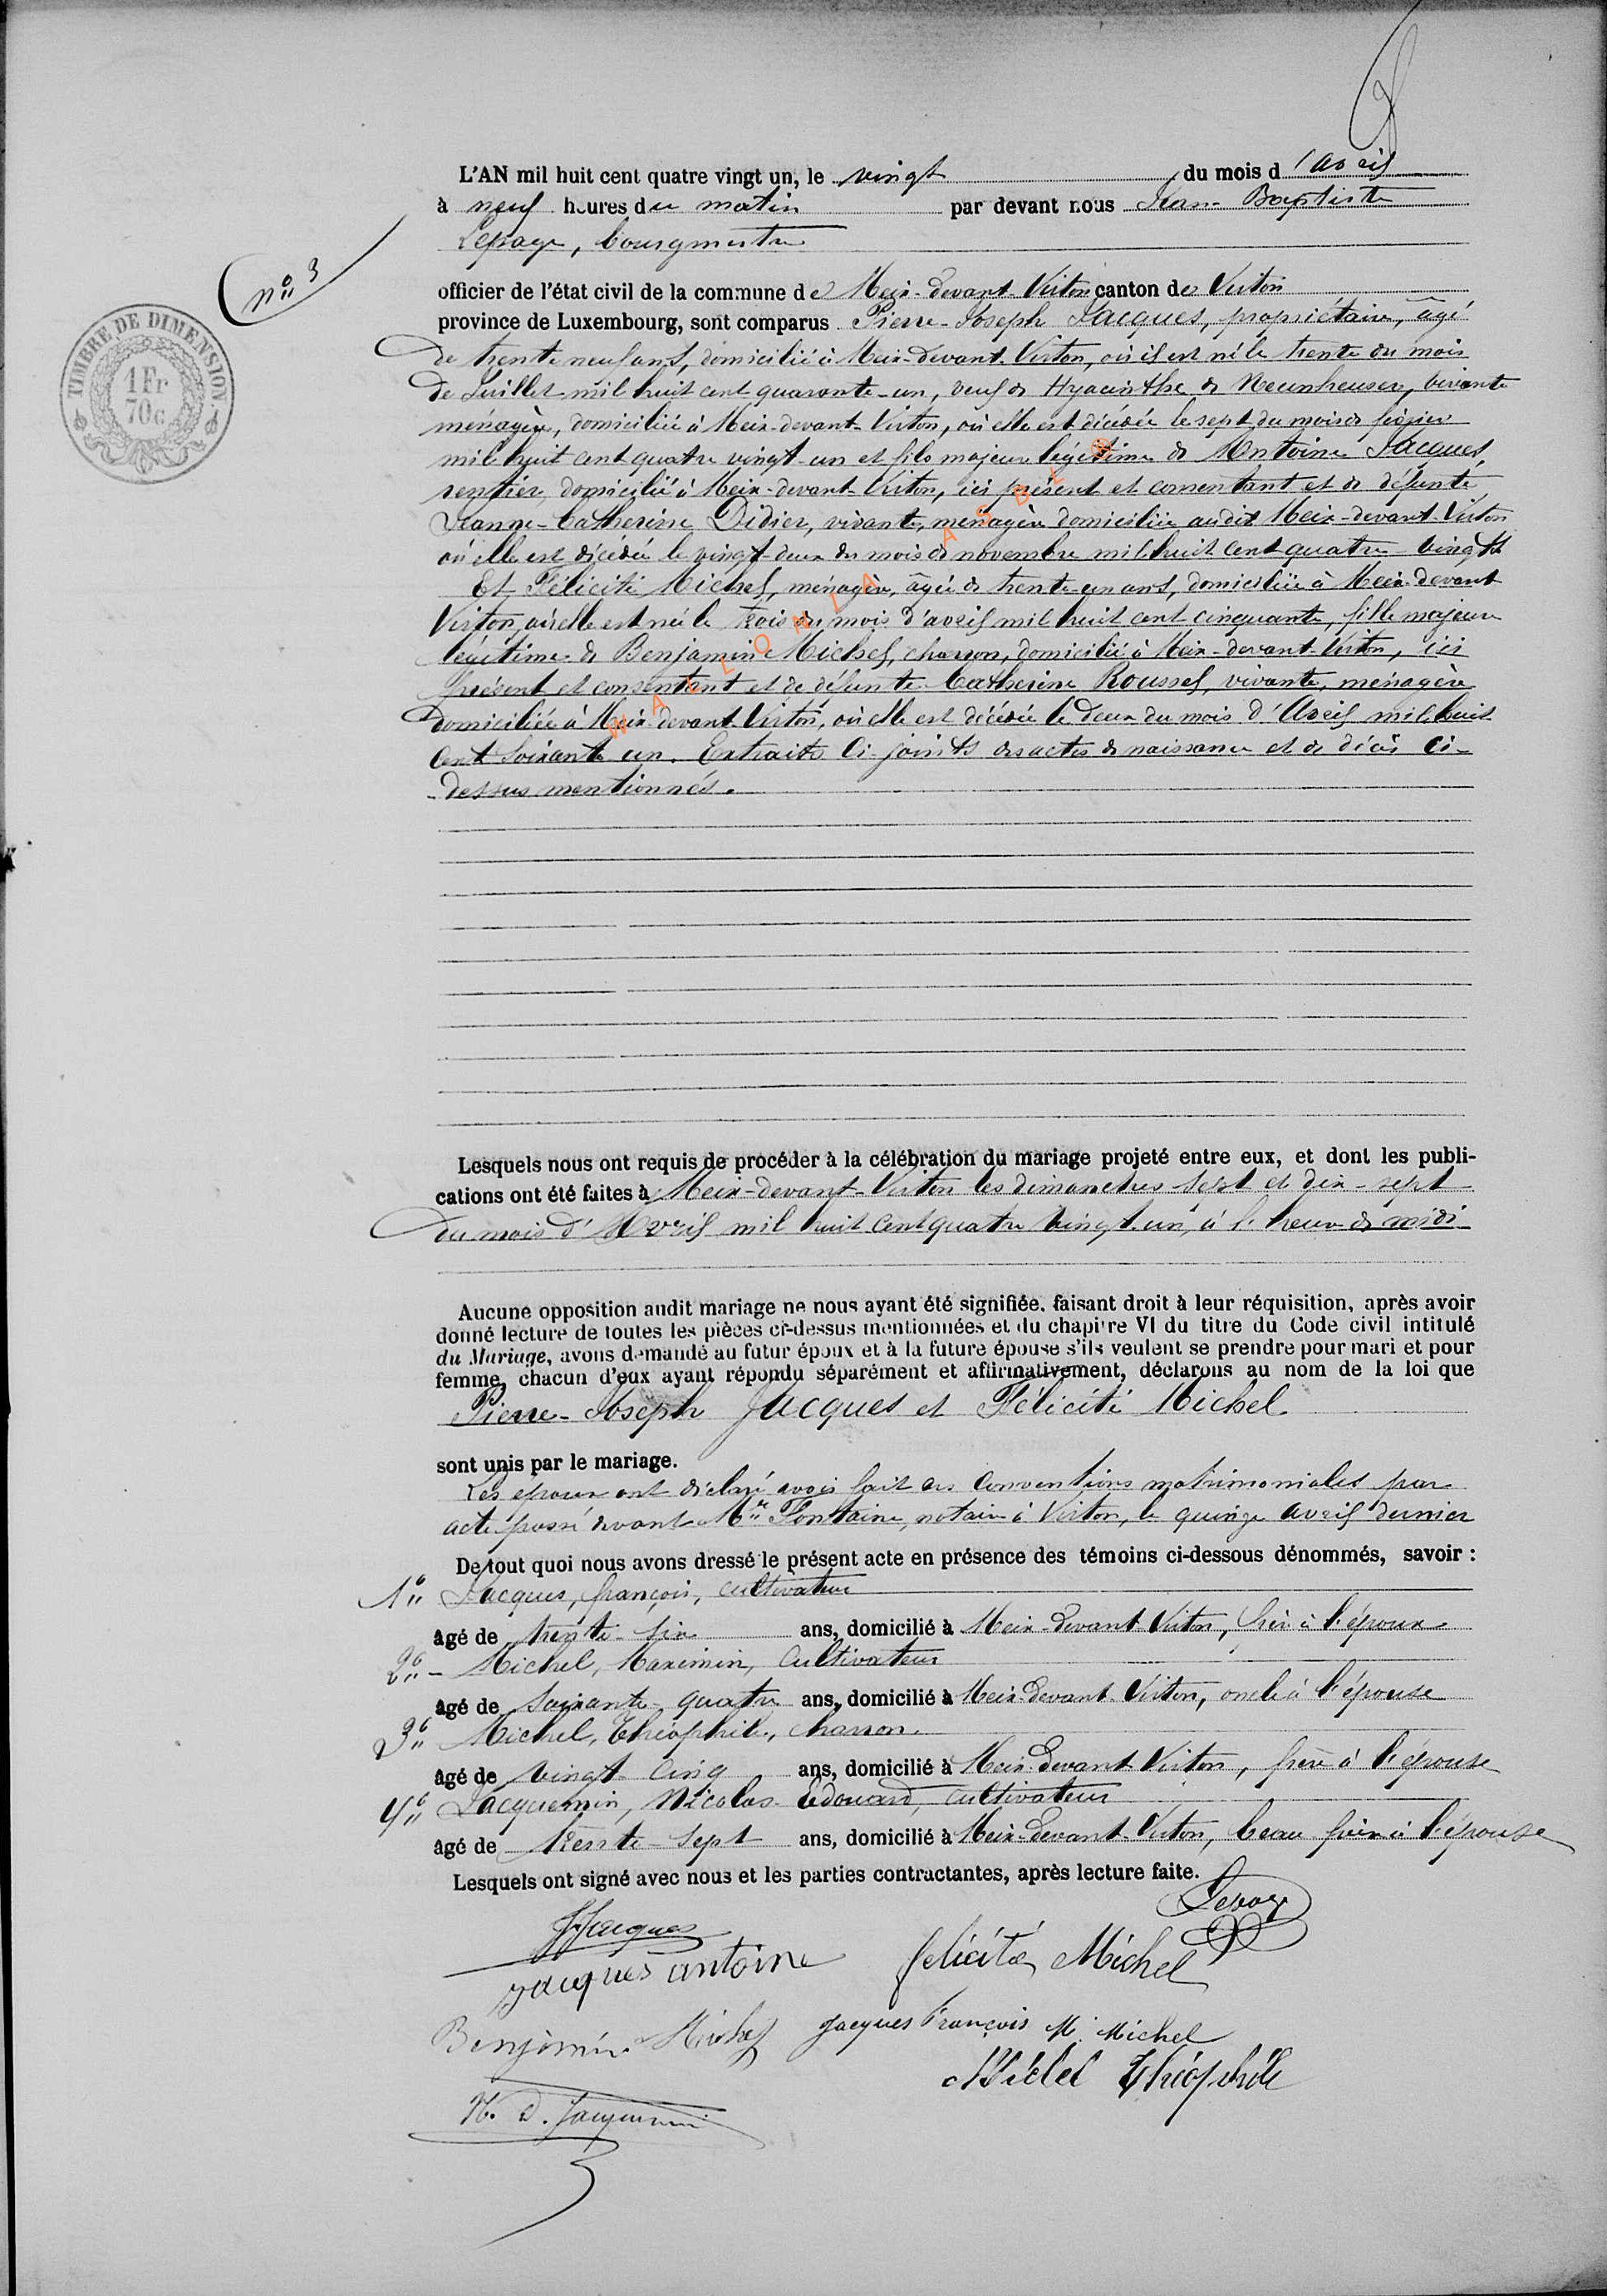 L'AN mil huit cent quatre vingt un, le vingt du mois d'avril
à neuf heures du matin par devant nous Jean-Baptiste
Lepage, bourgmestre
n° 3
officier de l'état civil de la commune de Meix-devant-Virton canton de Virton
TIMBRE DE DIMENSION
1 Fr
70c
province de Luxembourg, sont comparus Pierre-Joseph Jacques, propriétaire, âgé
de trente neuf ans, domicilié à Meix-devant-Virton, où il est né le trente du mois
de Juillet mil huit cent quarante-un, veuf de Hyacinthe de Neunheuser, vivante
ménagère, domiciliée à Meix-devant-Virton, où elle est décédée le sept du mois de février
mil huit cent quatre vingt-un et fils majeur légitime de Antoine Jacques,
rentier, domicilié à Meix-devant-Virton, ici présent et consentant et de défunte
Jeanne-Catherine Didier, vivante, ménagère domiciliée audit Meix-devant-Virton
où elle est décédée le vingt-deux du mois de novembre mil huit cent quatre-vingts
Et Félicité Michel, ménagère, âgée de trente-un ans, domiciliée à Meix-devant
Virton, où elle est née le trois du mois d'avril mil huit cent cinquante, fille majeure
légitime de Benjamin Michel, charron, domicilié à Meix-devant-Virton, ici
présent et consentant et de défunte Catherine Roussel, vivante, ménagère
domiciliée à Meix-devant-Virton, où elle est décédée le deux du mois d'Avril mil huit
cent soixante un. Extraits ci-joints des actes de naissance et de décès ci-
dessus mentionnés.
WALLONIA ASBL
Lesquels nous ont requis de procéder à la célébration du mariage projeté entre eux, et dont les publi-
cations ont été faites à Meix-devant-Virton les dimanches sept et dix-sept
du mois d'Avril mil huit cent quatre vingt-un, à l'heure de midi
Aucune opposition audit mariage ne nous ayant été signifiée, faisant droit à leur réquisition, après avoir
donné lecture de toutes les pièces ci-dessus mentionnées et du chapitre VI du titre du Code civil intitulé
du Mariage, avons demandé au futur époux et à la future épouse s'ils veulent se prendre pour mari et pour
femme, chacun d'eux ayant répondu séparément et affirmativement, déclarons au nom de la loi que
Pierre-Joseph Jacques et Félicité Michel
sont unis par le mariage.
Les époux ont déclaré avoir fait des conventions matrimoniales par
acte passé devant Me Fontaine, notaire à Virton, le quinze avril dernier
De tout quoi nous avons dressé le présent acte en présence des témoins ci-dessous dénommés, savoir :
1° Jacques, françois, cultivateur
âgé de trente-six ans, domicilié à Meix-devant-Virton, frère à l'époux
2° - Michel, Maximin, cultivateur
âgé de soixante-quatre ans, domicilié à Meix-devant-Virton, oncle à l'épouse
3° Michel, Théophile, charron.
âgé de vingt-cinq ans, domicilié à Meix-devant-Virton, frère à l'épouse
4° Jacquemin, Nicolas-Edouard, cultivateur
âgé de trente-sept ans, domicilié à Meix-devant-Virton, beau frère à l'épouse
Lesquels ont signé avec nous et les parties contractantes, après lecture faite.
Lepage
Jacques
jacques antoine felicité Michel
Benjamin Michel jacques françois M. Michel
Michel Théophile
N. D. Jacquemin